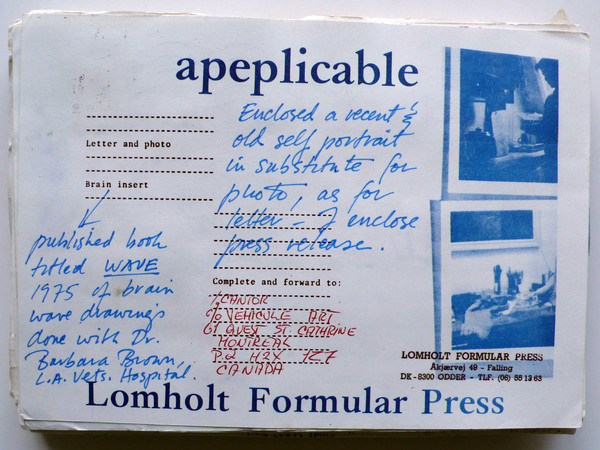 apeplicable
Letter and photo
Brain insert
Enclosed a recent &
old self portrait
in substitute for
photo, as for
letter - I enclose
press release.
published book
titled WAVE
1975 of brain
wave drawings
done with Dr.
Barbara Brown,
L.A. Vets. Hospital.
Complete and forward to:
% CANTOR
c/o VEHICULE ART
61 OUEST ST. CATHRINE
MONTREAL
P.Q H2X 1Z7
CANADA
LOMHOLT FORMULAR PRESS
Åkjærvej 49 - Falling
DK - 8300 ODDER - TLF. (06) 55 13 63
Lomholt Formular Press